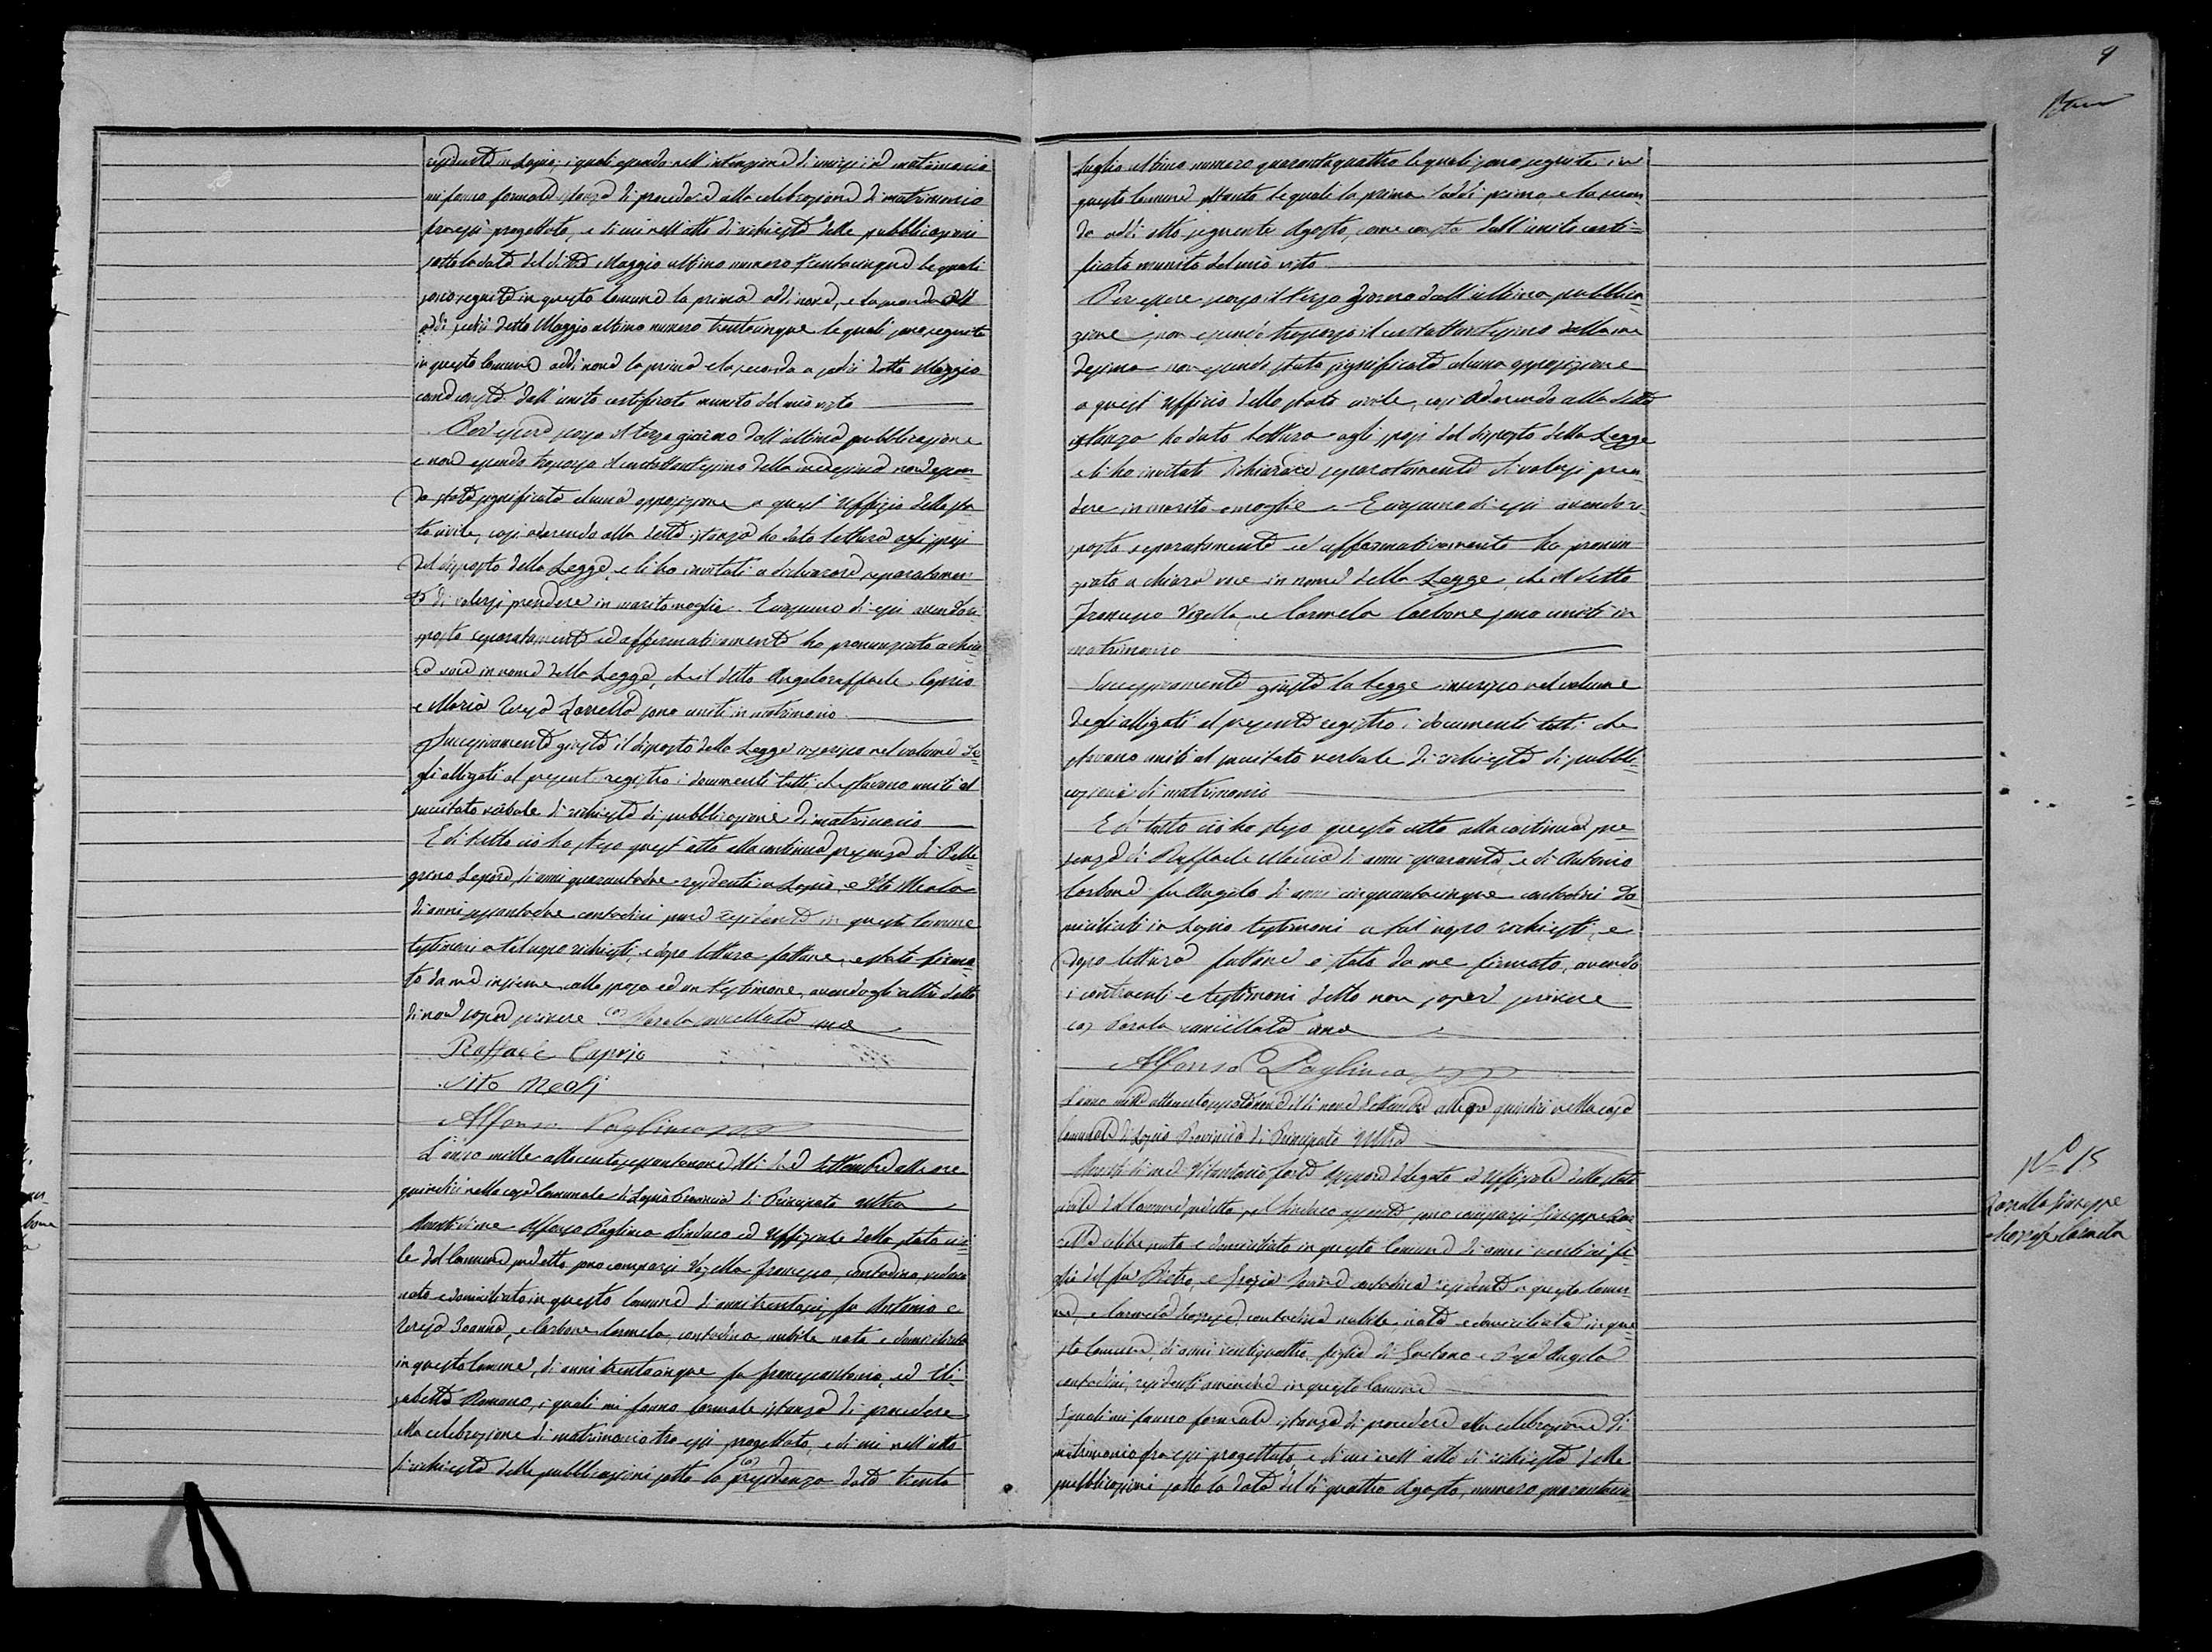 residente in Lapio, i quali essendo nell'intenzione di unirsi in matrimonio
mi fanno formale istanza di procedere alla celebrazione di matrimonio
fra essi progettato, e di cui nell'atto di richiesta delle pubblicazioni
sotto la data del dì Maggio ultimo numero trentacinque le quali
sono seguite in questo Comune la prima addì nove, e la seconda
addì sedici detto Maggio ultimo numero trentacinque le quali sono seguite
in questo Comune addì nove la prima e la seconda a sedici detto Maggio
come consta dall'unito certificato munito del mio visto
Per essere scorso il terzo giorno dall'ultima pubblicazione
e non essendo trascorso il centottantesimo della medesima non essen
do stata significata alcuna opposizione a quest'Uffizio dello sta
to civile, così aderendo alla detta istanza ho dato lettura agli sposi
del disposto della Legge, e li ho invitati a dichiarare separatamen
te di volersi prendere in marito moglie. E ciascuno di essi avendo ri
sposto separatamente ed affermativamente ho pronunziato a chia
ra voce in nome della Legge, che il detto Angeloraffaele Caprio
e Maria Teresa Zarrella sono uniti in matrimonio
Successivamente giusta il disposto della Legge inserisco nel volume de=
gli allegati al presente registro i documenti tutti, che stavano uniti al
succitato verbale di richiesta di pubblicazione di matrimonio
E di tutto ciò ho steso quest'atto alla continua presenza di Pelle=
grino Lepore, di anni quarantadue residenti a Lapio, e Vito Meola
di anni sessantadue contadini pure residente in questo Comune
testimoni a tal uopo richiesti, e dopo lettura fattane, e stato firma=
to da me insieme allo sposo ed un testimone, avendo gli altri detto
di non saper scrivere (a) Parola cancellata una
Raffaele Caprio
Vito Meoli
Alfonso Pagliuca
L'anno mille ottocentosessantanove il dì due Settembre alle ore
quindici nella casa Comunale di Lapio Provincia di Principato Ultra
Avanti di me Alfonso Pagliuca Sindaco ed Uffiziale dello stato ci=
le del Comune predetto sono comparsi Vozella Francesco, contadino, vedovo
nato e domiciliato in questo Comune di anni trentasei, fu Antonio e
Teresa Ioanna, e Carbone Carmela, contadina nubile nata e domiciliata
in questo Comune, di anni trentacinque fu Francescantonio, ed Eli=
sabetta Romano, i quali mi fanno formale istanza di procedere
alla celebrazione di matrimonio tra essi progettato, e di cui nell'atto
di richiesta delle pubblicazioni sotto la (a) presidenza data trenta
9
luglio ultimo numero quarantaquattro le quali sono seguite in
questo Comune le quali la prima addì primo e la secon
da addì otto seguente Agosto, come consta dall'unito certi=
ficato munito del mio visto
Per essere scorso il terzo giorno dall'ultima pubblica=
zione, non essendo trascorso il centottantesimo dalla me
desima non essendo stata significata alcuna opposizione
a quest'Uffizio dello stato civile, così aderendo alla detta
istanza ho dato lettura agli sposi del disposto della Legge
e li ho invitati dichiarare separatamente di volersi pren
dere in marito e moglie. E ciascuno di essi avendo ri=
sposto separatamente ed affermativamente ho pronun
ziato a chiara voce in nome della Legge, che il detto
Francesco Vozella, e Carmela Carbone sono uniti in
matrimonio
Successivamente giusta la Legge inserisco nel volume
degli allegati al presente registro i documenti tutti che
stavano uniti al succitato verbale di richiesta di pubbli=
cazioni di matrimonio
E di tutto ciò ho steso questo atto alla continua pre=
senza di Raffaele di anni quaranta, e di Antonio
Carbone fu Angelo di anni cinquantacinque contadini do=
miciliati in Lapio testimoni a tal uopo richiesti, e
dopo lettura fattane è stato da me firmato, avendo
i contraenti e testimoni detto non sapere scrivere
(a) Parola cancellata una
Alfonso Pagliuca
L'anno mille ottocentosessantanove il dì nove Settembre alle ore quindici nella casa
Comunale di Lapio Provincia di Principato Ultra
Avanti di me Vitantonio Assessore delegato ed Uffiziale dello stato
civile del Comune predetto, pel Sindaco assente, sono comparsi Giuseppe Zar
rella celibe nato e domiciliato in questo Comune di anni fi=
glio del fu Pietro, e Grazia contadina residente in questo Comu=
ne, e Carmela contadina nubile, nata e domiciliata in que=
sto Comune, di anni ventiquattro, figlia di Gaetano e Angela
contadini, residenti amendue in questo Comune
I quali mi fanno formale istanza di procedere alla celebrazione di
matrimonio fra essi progettato, e di cui nell'atto di richiesta delle
pubblicazioni sotto la data del dì quattro Agosto, numero quarantacin
N° 15
Zarrella Giuseppe
Carmela